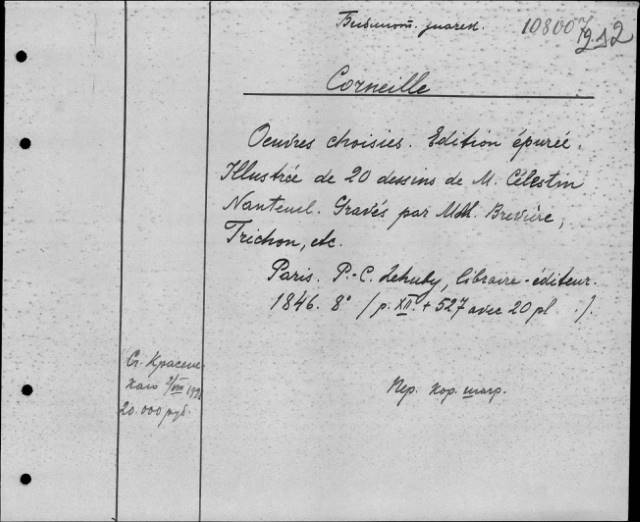 Библиот. знагек. 108007/g.12
Corneille
Oeuvres choisies. Edition épurée.
Illustrée de 20 dessins de M. Célestin
Nanteuil. Gravés par MM. Brevière,
Trichon, etc.
Paris. P.-C. Lehuby, libraire-éditeur.
1846. 8° (p. XII. + 527 avec 20 pl .).
От Красен-
20.000 руб.
Пер. кор. шагр.